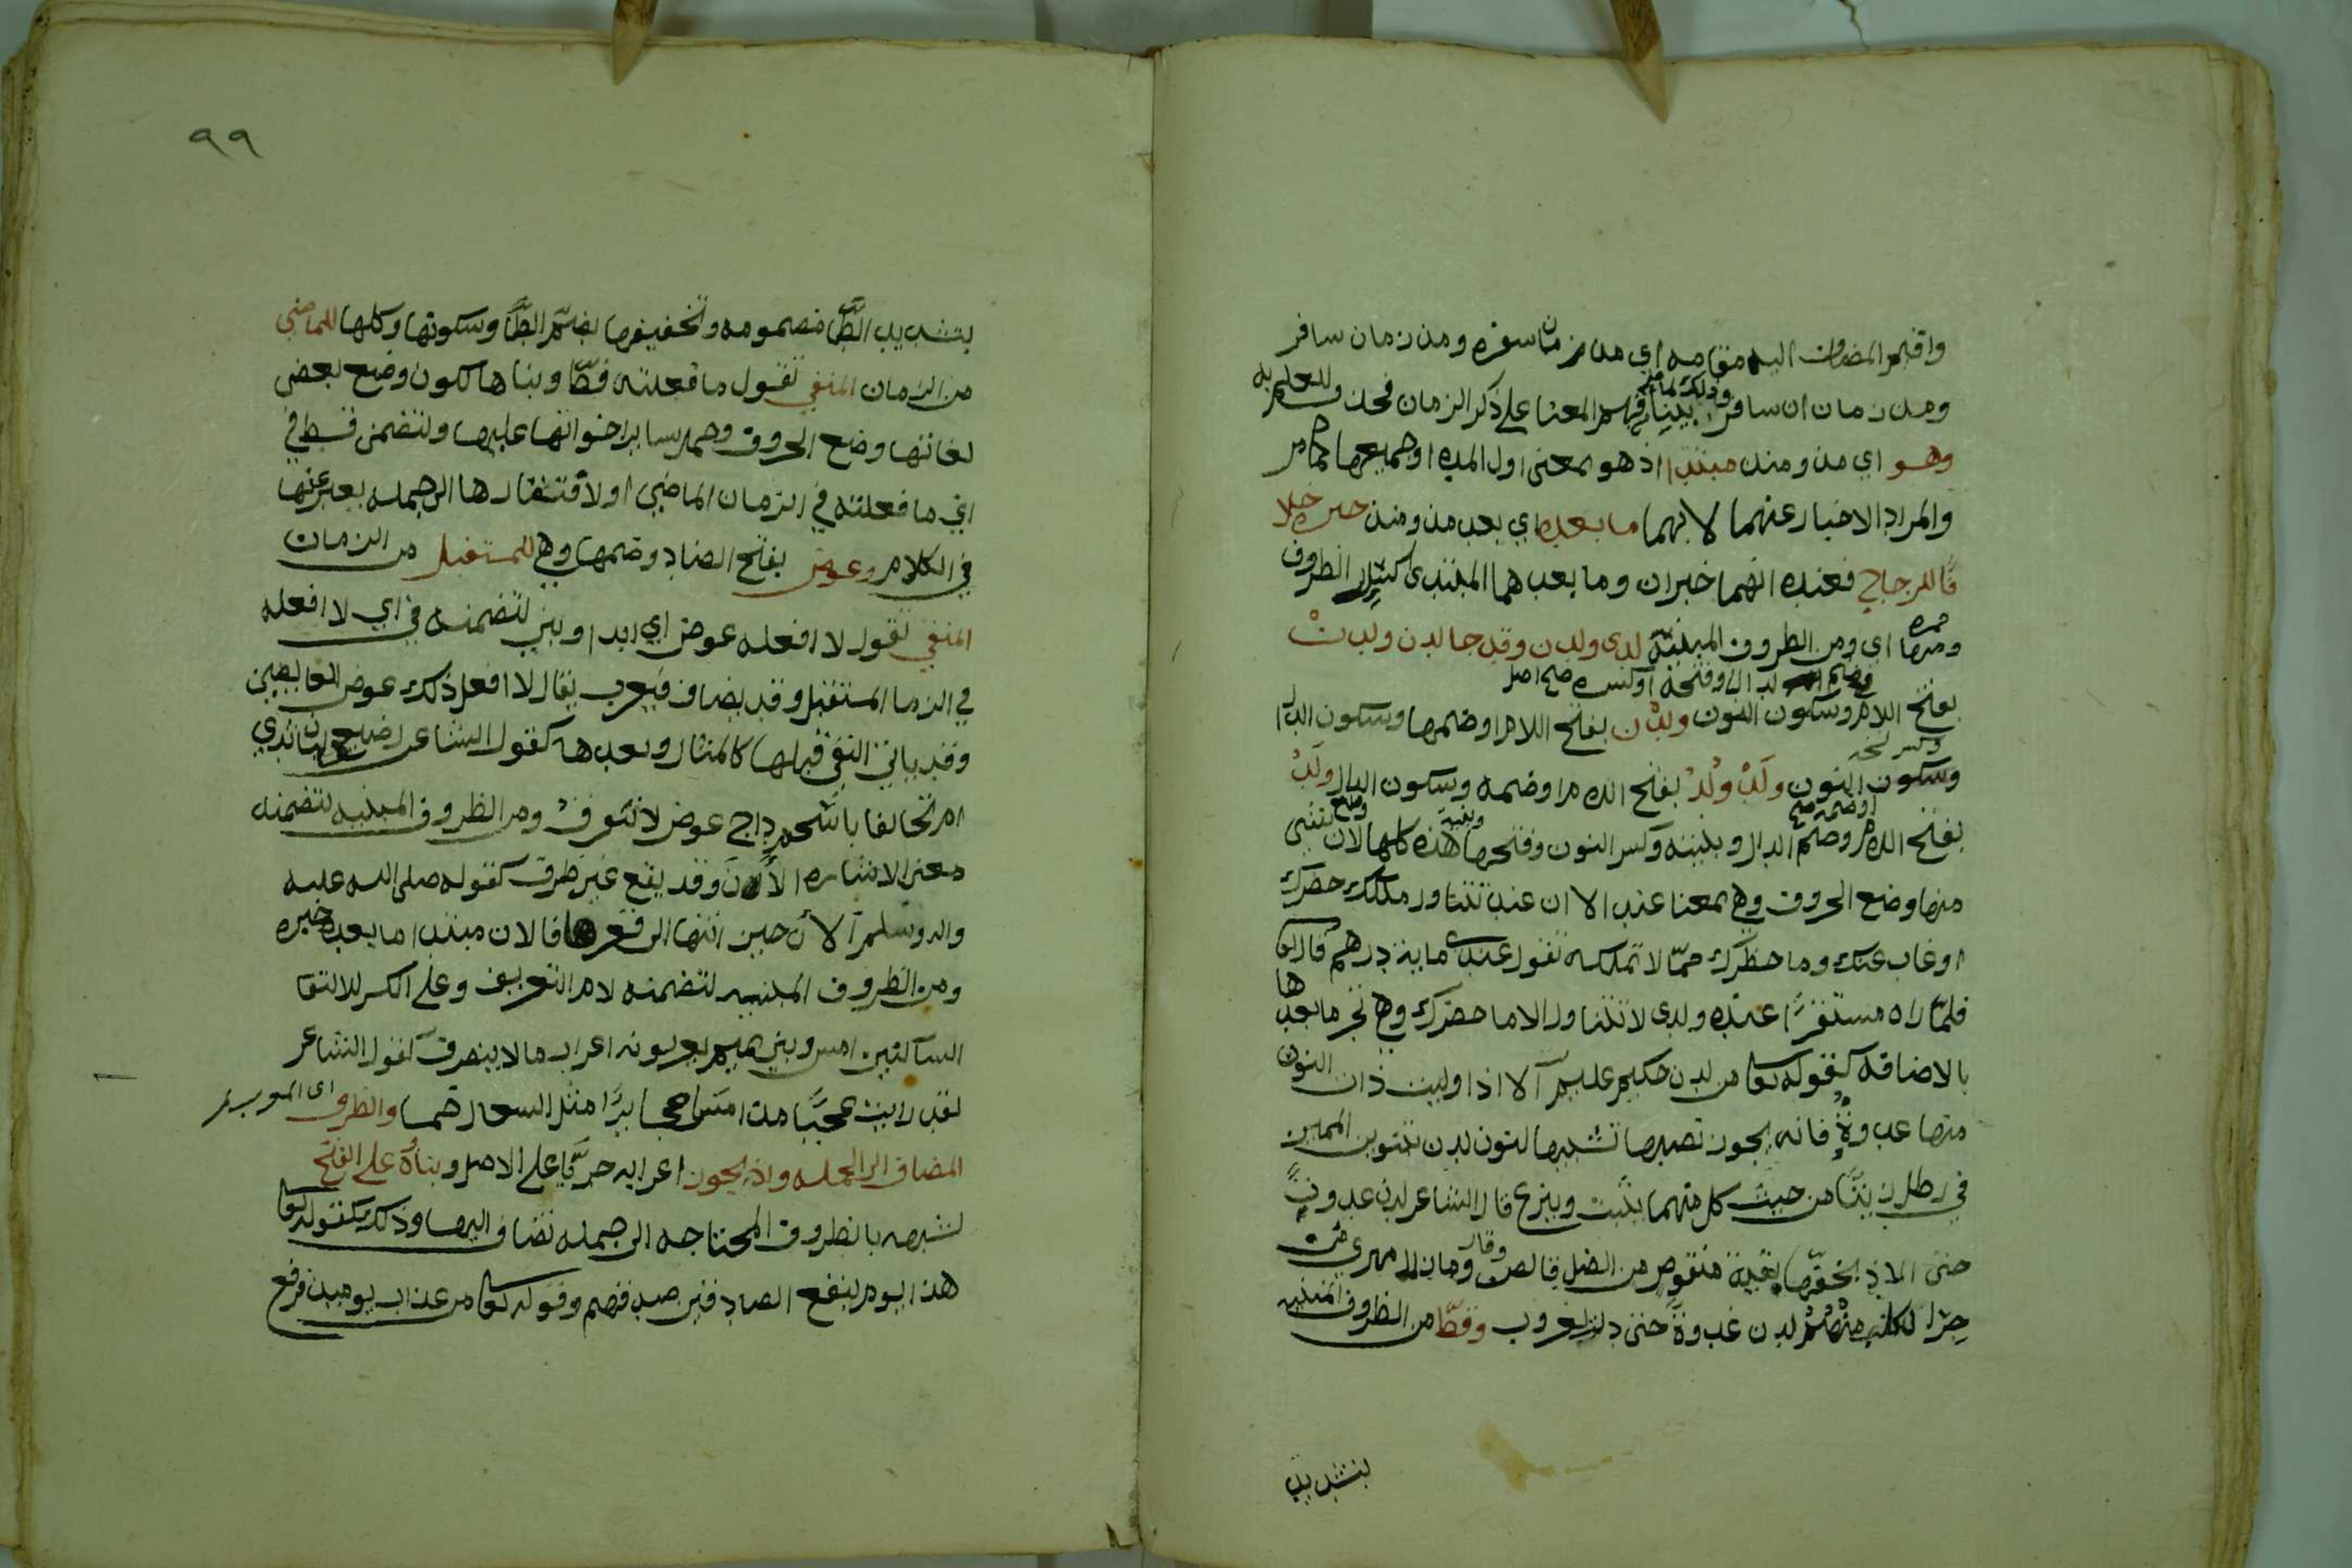 واقيم المضاف اليه مقامه اي من زمان سفره ومن زمان سافر
ومن زمان ان سافر وذلك لما بينا فهم المعنا على ذكر الزمان فحذف للعلم به
وهو اي مذ ومنذ مبتدا اذ هو بمعنى اول المده او جميعها كما مر
والمراد الاخبار عنهما لا بهما ما بعده اي بعد مذ ومنذ خبره خلا
فا للزجاج فعنده انهما خبران وما بعدهما المبتدى الظروف
ومنها اي ومن الظروف المبنيه لدى ولدن وقد جا لدن ولدن
بفتح اللام وسكون النون ولدن بفتح اللام او ضمها وسكون الدال
وسكون النون ولد ولد بفتح اللام او ضمه وسكون الدال ولد
بفتح اللام وضم الدال وكسر النون وفتحها هذه كلها لان وضع
منها وضع الحروف وهي بمعنا عند الا ان عند تتناول ملكك حضرك
او غاب عنك وما حضرك مما لا تملكه تقول عندي مايه درهم قال تعا
فلما راه مستقرا عنده ولدى لا تتناول الا ما حضرك وهي تجر ما بعدها
بالاضافه كقوله تعا من لدن حكيم عليم الا اذا وليت ذات النون
منها غدوة فانه يجوز نصبها تشبيها لنون لدن بتنوين المميز
في رطل زيتا من حيث كل منهما يثبت وينزع قال الشاعر لدن غدوة
حتى الاذ بخفها بقية منقوص من الظل قالص وقال وما زال مهري
مزجر الكلب منهم لدن غدوة حتى دنت لغروب وقط من الظروف المبنيه
بتشديد
٩٩
بتشديد الطا مضمومه وتخفيفها بضم الطا وسكونها وكلها للماضي
من الزمان المنفي تقول ما فعلته قط وبناها لكون وضع بعض
لغاتها وضع الحروف وحمل ساير اخواتها عليها ولتضمن قط في
اي ما فعلته في الزمان الماضي او لافتقارها الى جمله يعبر عنها
في الكلام وعوض بفتح الضاد وضمها وهي للمستقبل من الزمان
المنفي تقول لا افعله عوض اي ابدا وبني لتضمنه في اي لا افعله
في الزما المستقبل وقد يضاف فيعرب يقال لا افعل ذلك عوض العايضين
وقد ياتي النفي قبلها كالمثال وبعدها كقول الشاعر رضيعي لبان ثدي
ام تحالفا باسحم داج عوض لا نتفرق ومن الظروف المبنيه لتضمنه
معنى الاشاره الآن وقد يقع غير ظرف كقوله صلى الله عليه
واله وسلم الآن حين انتها الى قعرها فالان مبتدا ما بعده خبره
ومن الظروف المبنيه لتضمنه لام التعريف وعلى الكسر لالتقا
الساكنين امس وبني تميم يعربونه اعراب ما لا ينصرف كقول الشاعر
لقد رايت عجبا مذ امسا عجايزا مثل السعالى خمسا والظرف
المضاف الى الجمله واذ يجوز اعرابه جريا على الاصل وبناؤه على الفتح
لشبهه بالظروف المحتاجه الى جمله تضاف اليها وذلك كقوله تعا
هذا يوم ينفع الصادقين صدقهم وقوله تعا من عذاب يوميذ فرفع